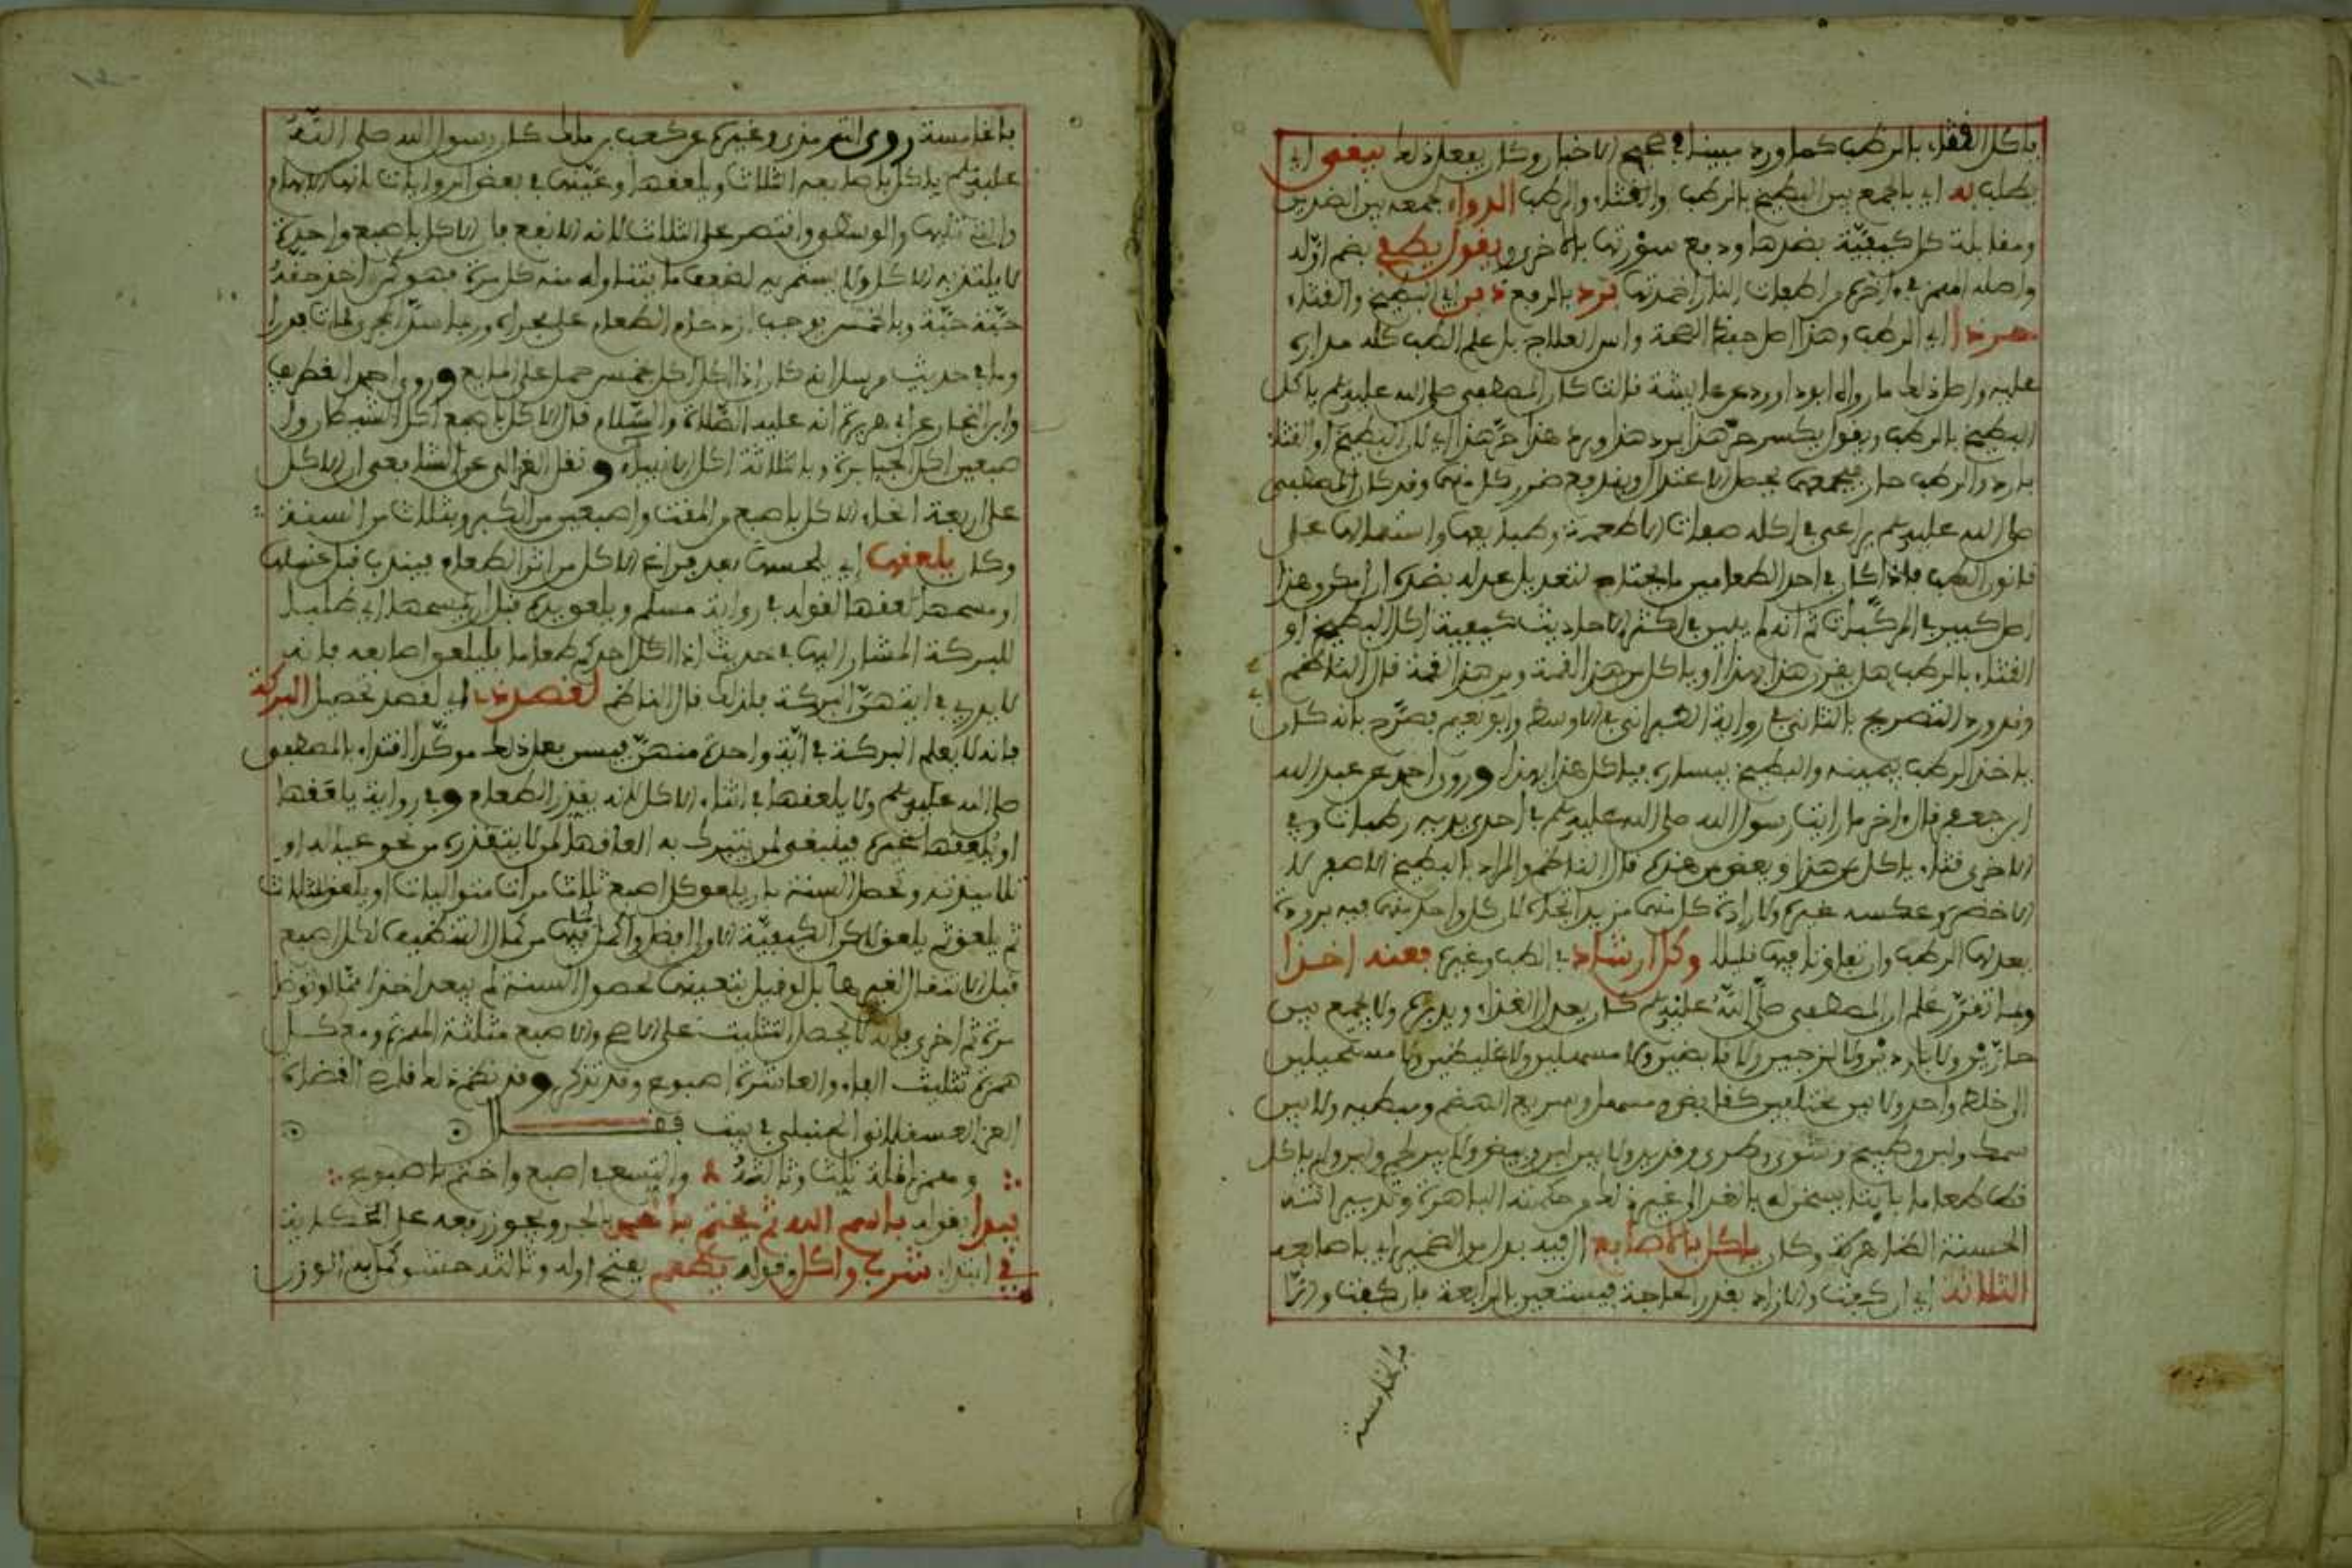 ياكل القثاء بالرطب كما ورد مبينا في صحيح الاخبار وكان يفعل ذلك يبغي اي
يطلب به اي بالجمع بين البطيخ بالرطب والقثاء والرطب الدواء بجمعه بين الضدين
ومقابلة كل كيفية بضدها ودفع سورتها بالاخرى ويقول يطفي بضم اوله
واصله الهمز في اخره من اطفات النار اخمدتها برد بالرفع ذين اي البطيخ والقثاء
حر ذا اي الرطب وهذا اصل حفظ الصحة واس العلاج بل علم الطب كله مداره
عليه واصل ذلك ما رواه ابو داوود عن عايشة قالت كان المصطفى صلى الله عليه وسلم ياكل
البطيخ بالرطب ويقول يكسر حر هذا برد هذا وبرد هذا حر هذا اي لان البطيخ او القثاء
بارد والرطب حار فبجمعهما يحصل الاعتدال ويندفع ضرر كل منهما وقد كان المصطفى
صلى الله عليه وسلم يراعي في اكله صفات الاطعمة وطبايعها واستعمالها على
قانون الطب فاذا كان في احد الطعامين ما يحتاج لتعديل عدله بضده ان امكن وهذا
اصل كبير في المركبات ثم انه لم يبين في اكثر الاحاديث كيفية اكل البطيخ او
القثاء بالرطب هل يقرن هذا بهذا او ياكل من هذا لقمة ومن هذا لقمة قال الناظم
وقد ورد التصريح بالثاني في رواية الطبراني في الاوسط وابو نعيم فصرح بانه كان
ياخذ الرطب بيمينه والبطيخ بيساره فياكل هذا بهذا وروى احمد عن عبد الله
ابن جعفر قال اخر ما رايت رسول الله صلى الله عليه وسلم في احدى يديه رطبات وفي
الاخرى قثاء ياكل من هذا ويعض من هذه قال الناظم والمراد بالبطيخ الاصفر لا
الاخضر وعكسه غيره ولا إرادة كل منهما مزيد اتجاه لان كل واحد منهما فيه برودة
يعدلها الرطب وان تفاوتا فيها قليلا وكل ارشاد في الطب وغيره فعنه اخذا
ومما تقرر علم ان المصطفى صلى الله عليه وسلم كان يعدل الغذاء ويدبره ولا يجمع بين
حارين ولا باردين ولا لزجين ولا قابضين ولا مسهلين ولا غليظين ولا مستحيلين
الى خلط واحد ولا بين مختلفين كقابض ومسهل وسريع الهضم وبطيه ولا بين
سمك ولبن وطبيخ وشوي وطري وقديد ولا بين لبن وبيض ولا بين لحم ولبن ولم ياكل
قط طعاما بايتا يسخن له بالغد الى غير ذلك من حكمته الباهرة وتدبيراته
الحسنة الظاهرة وكان ياكل بالاصابع ال فيه بدل من الضمير اي باصابعه
الثلاثة اي ان كفت والا زاد بقدر الحاجة فيستعين بالرابعة فان كفت والا
بالخامسة
بالخامسة روى الترمذي وغيره عن كعب بن مالك كان رسول الله صلى الله
عليه وسلم ياكل باصابعه الثلاث ويلعقها وعينها في بعض الروايات بانها الابهام
والتي تليها والوسطى واقتصر على الثلاث لانه الانفع فان الاكل باصبع واحدة
لا يلتذ به الاكل ولا يستمريه لضعف ما يتناوله منه كل مرة فهو كمن اخذ حقه
حبة حبة وبالخمس يوجب ازدحام الطعام على مجراه وربما سد المجرى فمات فورا
وما في حديث مرسل انه كان اذا اكل اكل بخمس حمل على المايع وروى احمد الغطريف
وابن النجار عن ابي هريرة انه عليه الصلاة والسلام قال الاكل باصبع اكل الشيطان وبا
صبعين اكل الجبابرة وبالثلاثة اكل الانبياء ونقل الغزالي عن الشافعي ان الاكل
على اربعة انحاء الاكل باصبع من المقت واصبعين من الكبر وبثلاث من السنة
وكان يلعقها اي يلحسها بعد فراغ الاكل من اثر الطعام فيندب قبل غسلها
او مسحها لعقها لقوله في رواية مسلم ويلعق يده قبل ان يمسحها اي طلبا
للبركة المشار اليها في حديث اذا اكل احدكم طعاما فليلعق اصابعه فانه
لا يدري في ايتهن البركة فلذلك قال الناظم لقصد ذي اي لقصد تحصيل البركة
فانه لا يعلم البركة في اية واحدة منهن فيسن فعل ذلك موكدا اقتداء بالمصطفى
صلى الله عليه وسلم ولا يلعقها في اثناء الاكل لانه يقذر الطعام وفي رواية يلعقها
او يلعقها غيره فينبغي لمن يتبرك به العاقها لمن لا يتقذره من نحو عياله او
تلاميذته وتحصل السنة بان يلعق كل اصبع ثلاث مرات متواليات او يلعق الثلاث
ثم يلعق ثم يلعق لاكن الكيفية الاولى افضل واكمل لما فيها من كمال التنظيف لكل اصبع
قبل الانتقال لغيرها بل لو قيل بتعينها لحصول السنة لم يبعد اخذا مما لو توضا
مرة ثم اخرى فانه لا يحصل التثليث على الاصح والاصبع مثلثة الهمزة ومع كل
همزة تثليث الباء والعاشرة اصبوع وقد تذكر وقد نظم ذلك قاضي القضاة
العز العسقلاني الحنبلي في بيت فقال
وهمز انملة ثلث وثالثه والتسع في اصبع واختم باصبوع
يبدا بقوله باسم الله ثم يختم بالحمد بالجر ويجوز رفعه على الحكاية
في ابتداء شرب واكل وقوله يطعم بفتح اوله وثالثه حشو كمل به الوزن